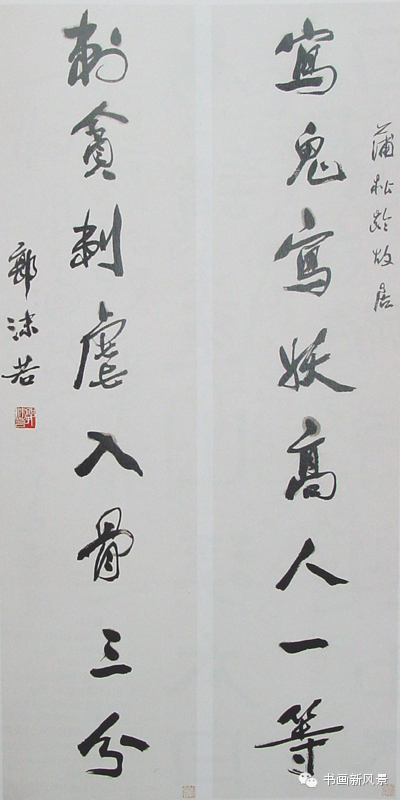 蒲松龄故居
寫鬼寫妖高人一等
刺貪刺虐入骨三分
郭沫若
书画新风景